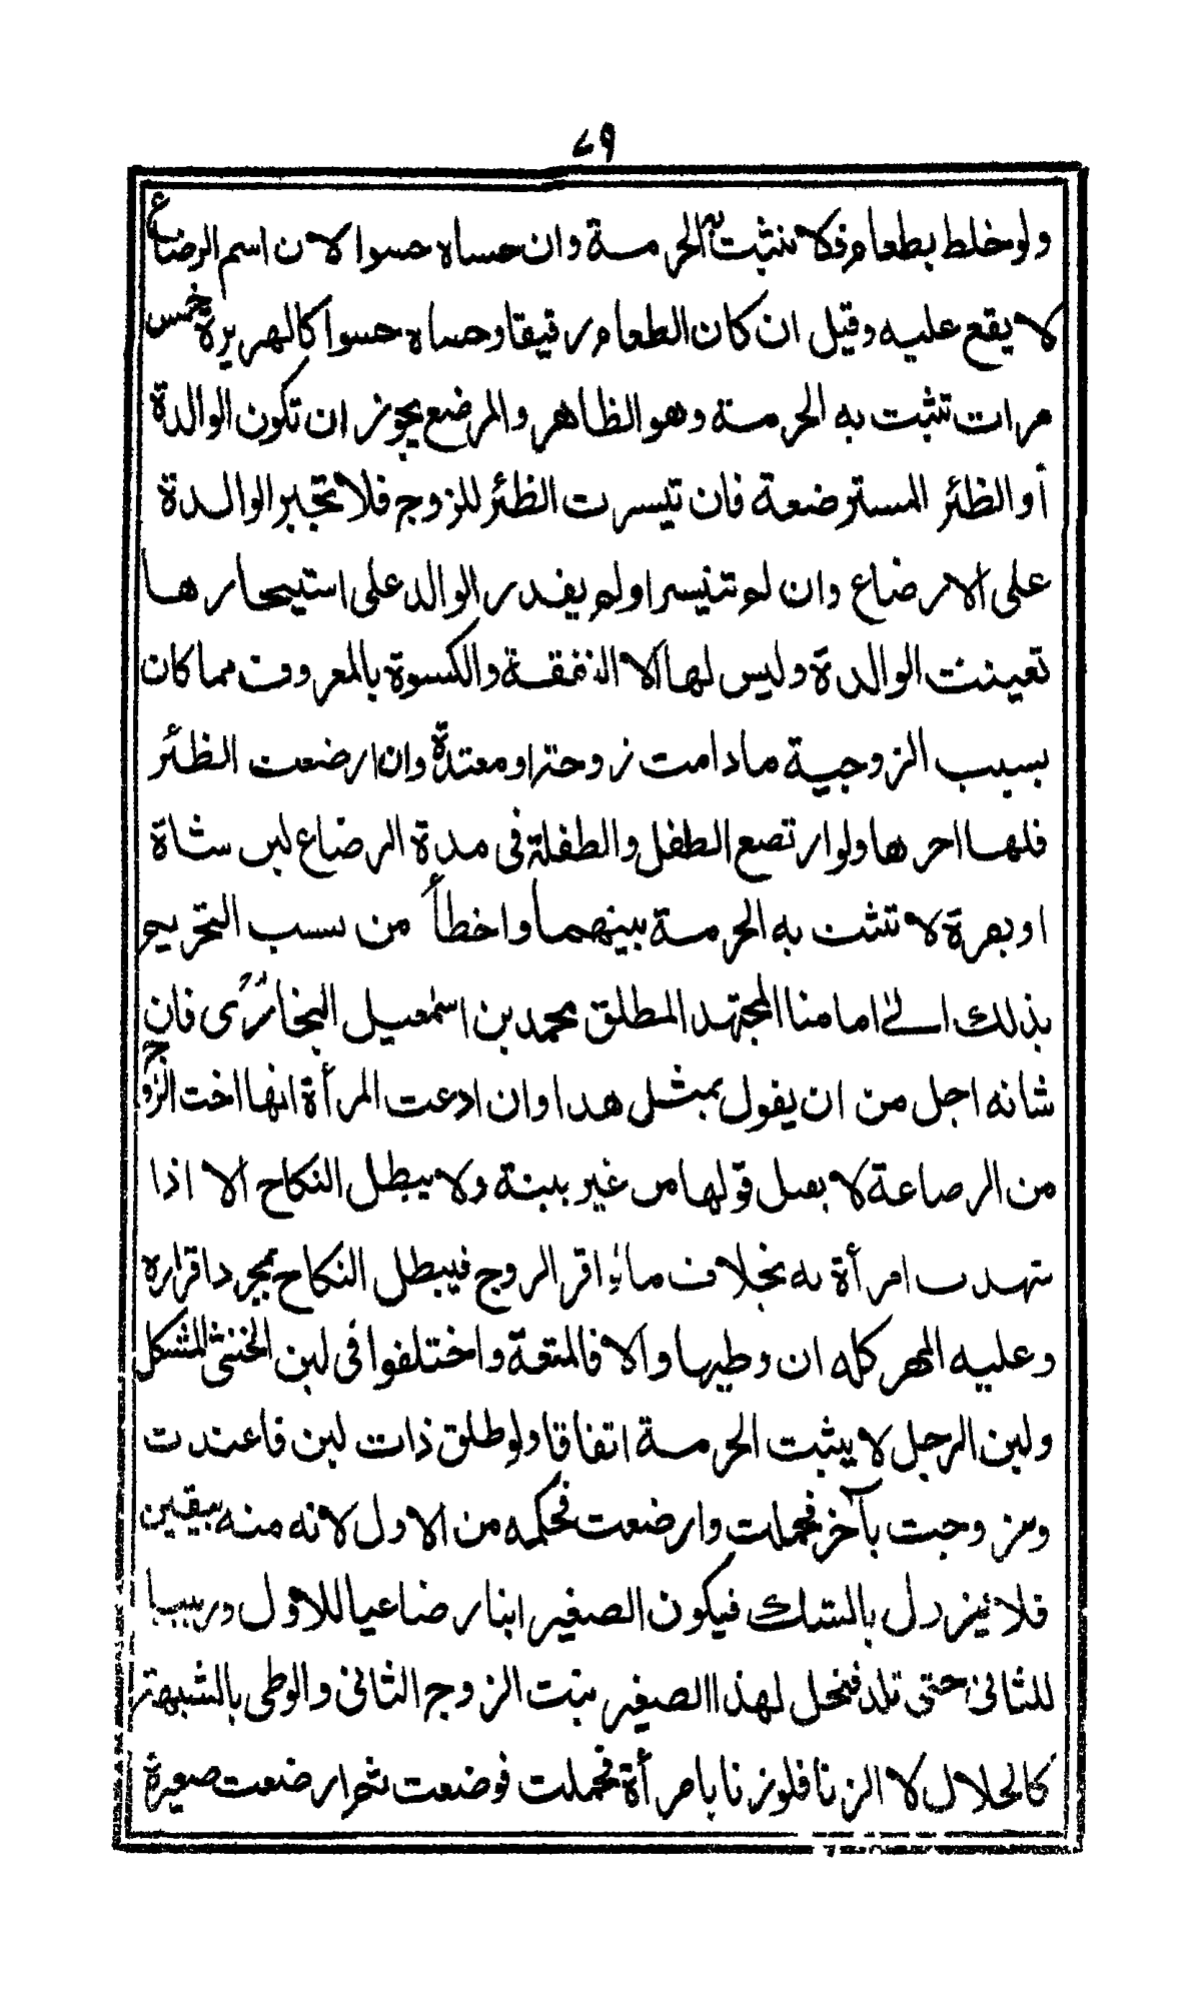 ٧٩
ولو خلط بطعام فلا تثبت به الحرمة وان حساه حسوا لان اسم الرضاع
لا يقع عليه وقيل ان كان الطعام رقيقا وحساه حسوا كالهريرة خمس
مرات تثبت به الحرمة وهو الظاهر والمرضع يجوز ان تكون الوالدة
أو الظئر المسترضعة فان تيسرت الظئر للزوج فلا تجبر الوالدة
على الارضاع وان لم تتيسر او لم يقدر الوالد على استيجارها
تعينت الوالدة وليس لها الا النفقة والكسوة بالمعروف مما كان
بسبب الزوجية ما دامت زوجته او معتدة وان ارضعت الظئر
فلها اجرها ولو ارتضع الطفل والطفلة فى مدة الرضاع لبن شاة
او بقرة لا تثبت به الحرمة بينهما واخطأ من نسب التحريم
بذلك الى امامنا المجتهد المطلق محمد بن اسمعيل البخارى فان
شانه اجل من ان يقول بمثل هذا وان ادعت المرأة انها اخت الزوج
من الرضاعة لا يقبل قولها من غير بينة ولا يبطل النكاح الا اذا
شهدت امرأة به بخلاف ما اذا اقر الزوج فيبطل النكاح بمجرد اقراره
وعليه المهر كله ان وطيها والا فالمتعة واختلفوا فى لبن الخنثى المشكل
ولبن الرجل لا يثبت الحرمة اتفاقا ولو طلق ذات لبن فاعتدت
وتزوجت بآخر فحملت وارضعت فحكمه من الاول لانه منه بيقين
فلا يزول بالشك فيكون الصغير ابنا رضاعيا للاول وربيبا
للثانى حتى تلد فيحل لهذا الصغير بنت الزوج الثانى والوطى بالشبهة
كالحلال لا الزنا فلو زنا بامرأة فحملت فوضعت ثم ارضعت صغيرة